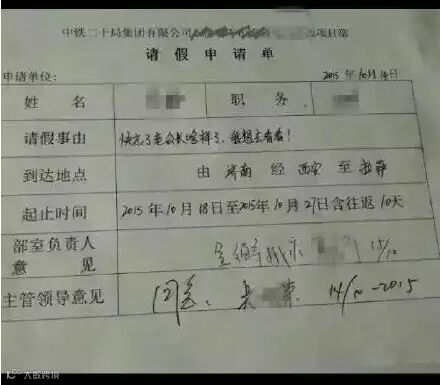 中铁二十局集团有限公司 改项目部
请假申请单
申请单位: 2015年10月14日
姓名 职务
请假事由 快忘了老公长啥样了,我想去看看!
到达地点 由济南经西安至拉萨
起止时间 2015年10月18日至2015年10月27日含往返10天
部室负责人
意见 15/10
主管领导意见 同意、 14/10-2015
大数跨境